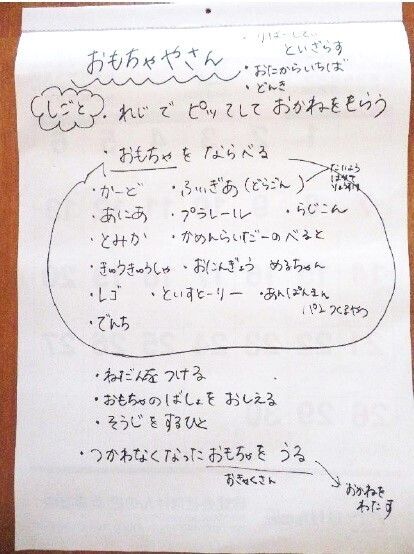 ・りばーしてぃ
といざらす
おもちゃやさん
・おたからいちば
・どんき
しごと
・れじで ピッてして おかねをもらう
・おもちゃを ならべる
・かーど ・ふぃぎあ(どらごん)
・あにあ ・プラレール ・らじこん
・とみか ・かめんらいだーのべると
・きゅうきゅうしゃ ・おにんぎょう めるちゃん
・レゴ ・といすとーりー ・あんぱんまん
パンつくるやつ
・でんち
・ねだんをつける
・おもちゃのばしょを おしえる
・そうじを するひと
・つかわなくなった おもちゃを うる
おきゃくさん
おかねを
わたす